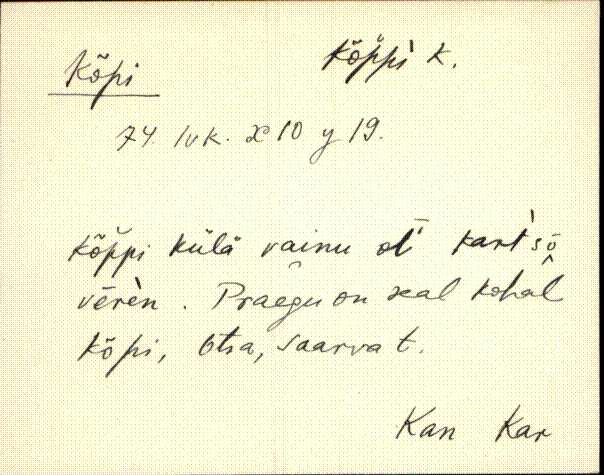 Kõpi
Kõppi k.
74. lvk. x 10 y 19.
Kõppi külä vainu oĺl karťsõ
vēren. Praegu on seal kohal
Kõpi, Otsa, Saarva t.
Kan Kar